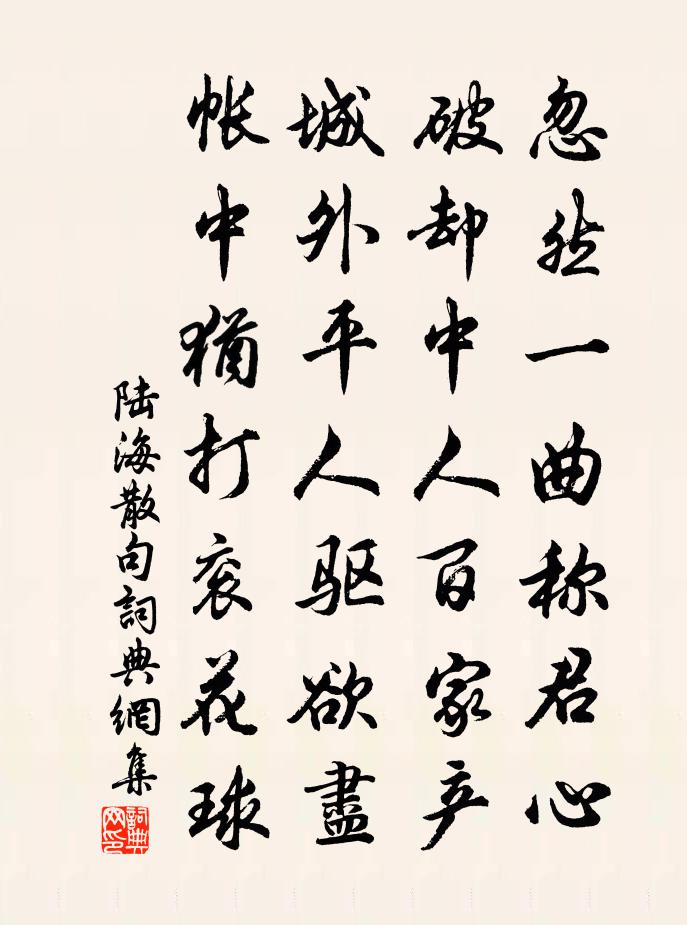 忽然一曲称君心
破却中人百家产
城外平人驱欲盡
帐中猶打衮花球
陆海散句詞典網集
詞典网印